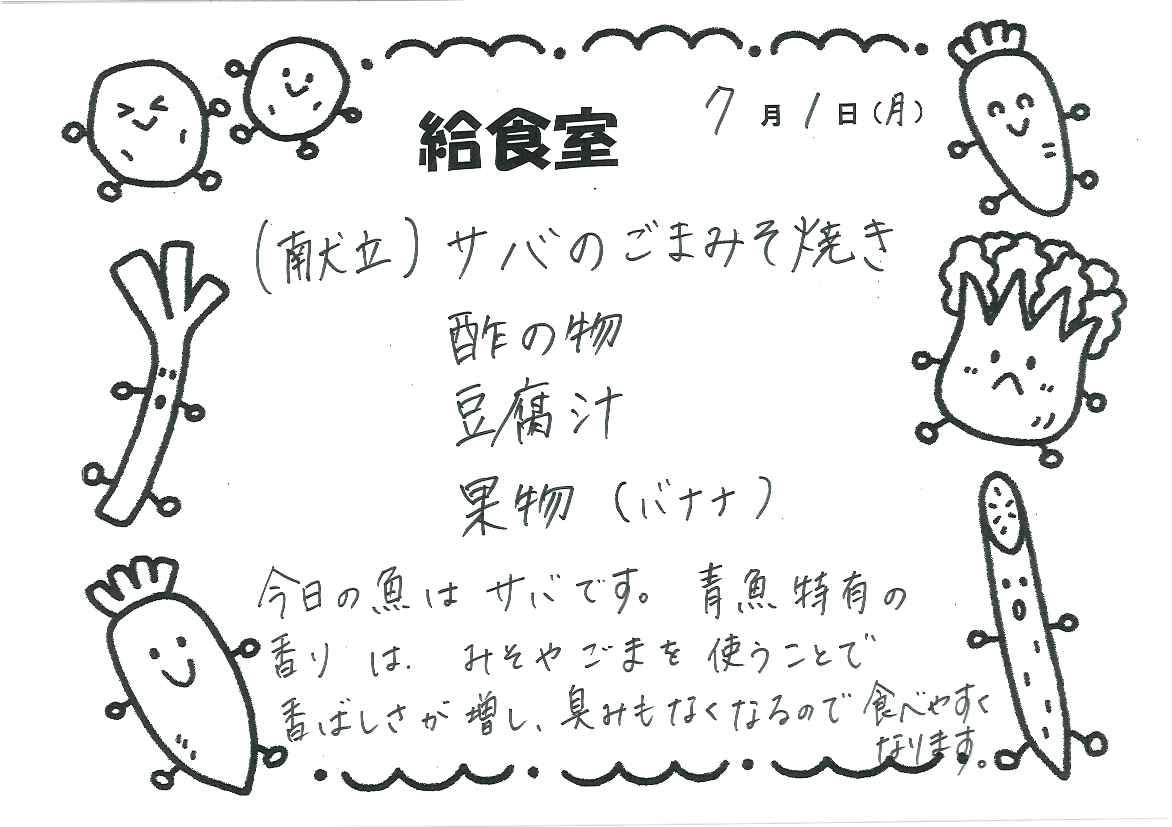 給食室 7月1日(月)
(献立)サバのごまみそ焼き
酢の物
豆腐汁
果物(バナナ)
今日の魚はサバです。青魚特有の
香りは、みそやごまを使うことで
香ばしさが増し、臭みもなくなるので食べやすく
なります。